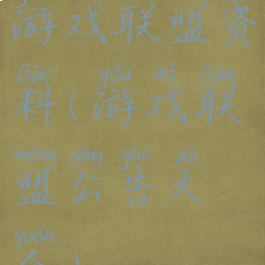 游戏联盟资
liào yóu xì lián
料(游戏联
méng gōng gào dà
盟公告大
quán
全)